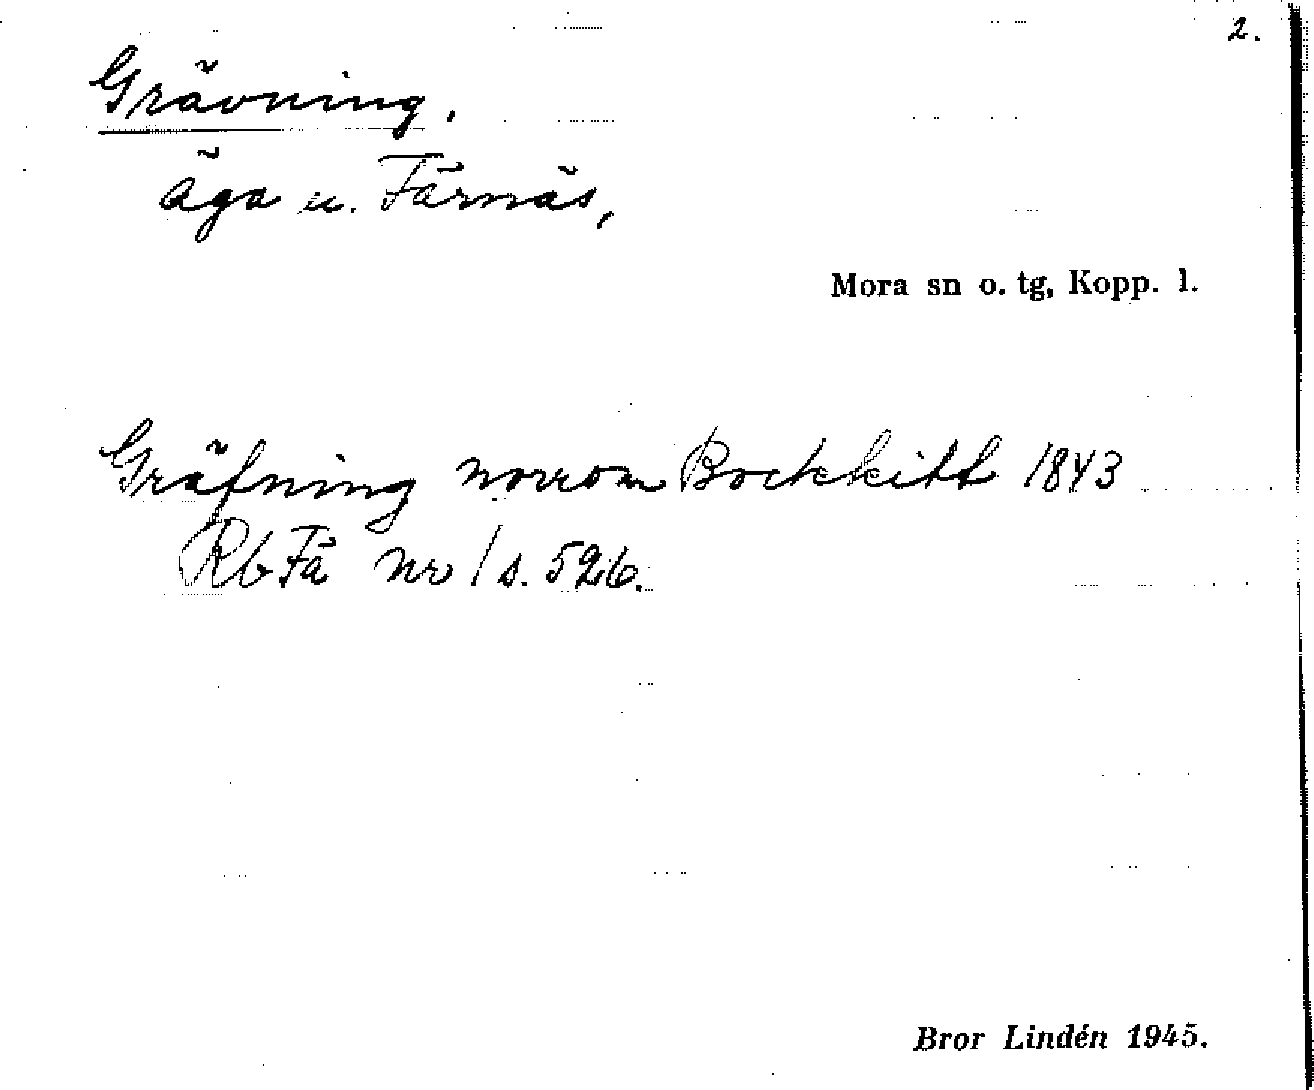 2.
Grävning.
äga u. Färnäs,
Mora sn o. tg, Kopp. l.
Gräfning norrom Bockkitt 1843
Rb Fä nr 1 s. 526.
Bror Lindén 1945.